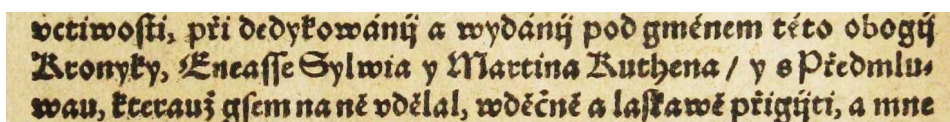 vctiwoſti, při dedykowánij a wydánij pod gménem této obogij
Kronyky, Eneaſſe Sylwia y Martina Kuthena / y s Předmlu⸗
wau, kterauž gſem na ně vdělal, wděčně a laſkawě přigijti, a mne